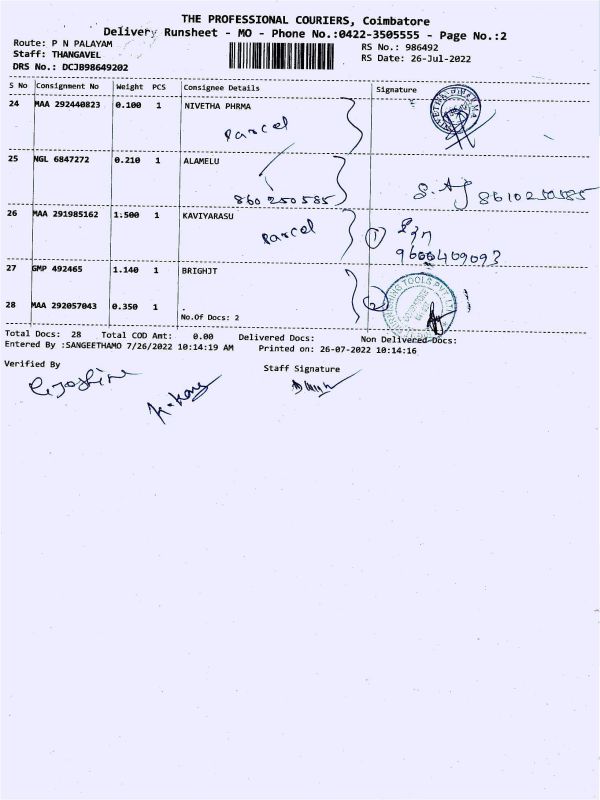 THE PROFESSIONAL COURIERS, Coimbatore
Delivery Runsheet - MO - Phone No.:0422-3505555 - Page No.:2
Route: P N PALAYAM
Staff: THANGAVEL
DRS No.: DCJB98649202
RS No.: 986492
RS Date: 26-Jul-2022
S No Consignment No Weight PCS Consignee Details Signature
24 MAA 292440823 0.100 1 NIVETHA PHRMA
Parcel
25 NGL 6847272 0.210 1 ALAMELU
860250585
8610250585
26 MAA 291985162 1.500 1 KAVIYARASU
Parcel
1
9600409093
27 GMP 492465 1.140 1 BRIGHJT
2
28 MAA 292057043 0.350 1
No.Of Docs: 2
Total Docs: 28 Total COD Amt: 0.00 Delivered Docs: Non Delivered Docs:
Entered By :SANGEETHAMO 7/26/2022 10:14:19 AM Printed on: 26-07-2022 10:14:16
Verified By
Staff Signature